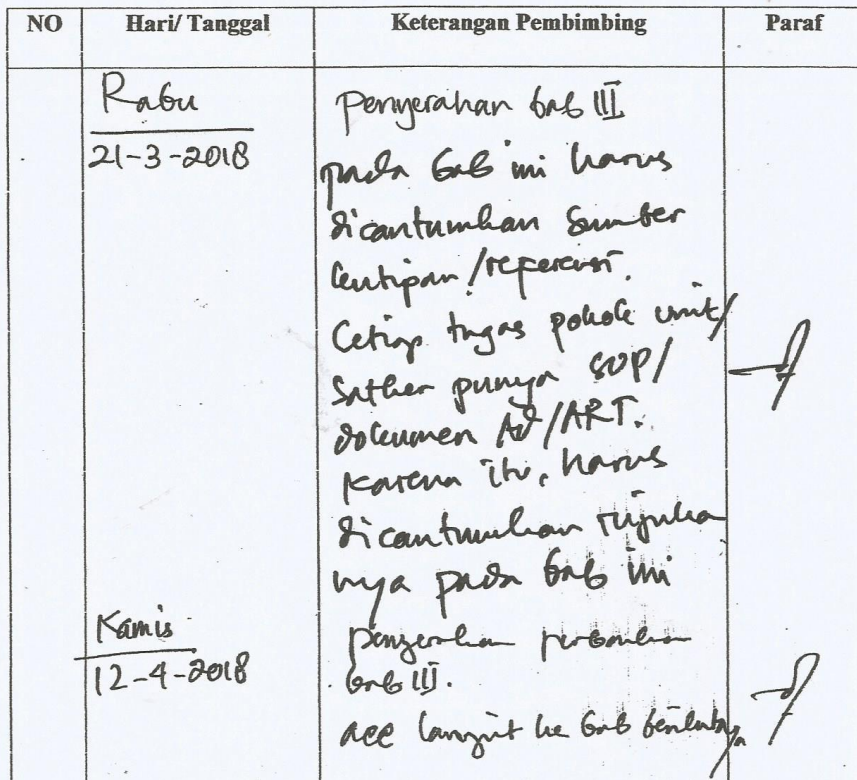 NO Hari/ Tanggal Keterangan Pembimbing Paraf
Rabu
21-3-2018
Penyerahan bab III
pada bab ini harus
dicantumkan sumber
kutipan/referensi.
Setiap tugas pokok unit/
Satker punya SOP/
dokumen AD/ART.
Karena itu, harus
dicantumkan rujuka
nya pada bab ini
Kamis
12-4-2018
penyerahan perbaikan
bab III.
acc lanjut ke bab berikutnya